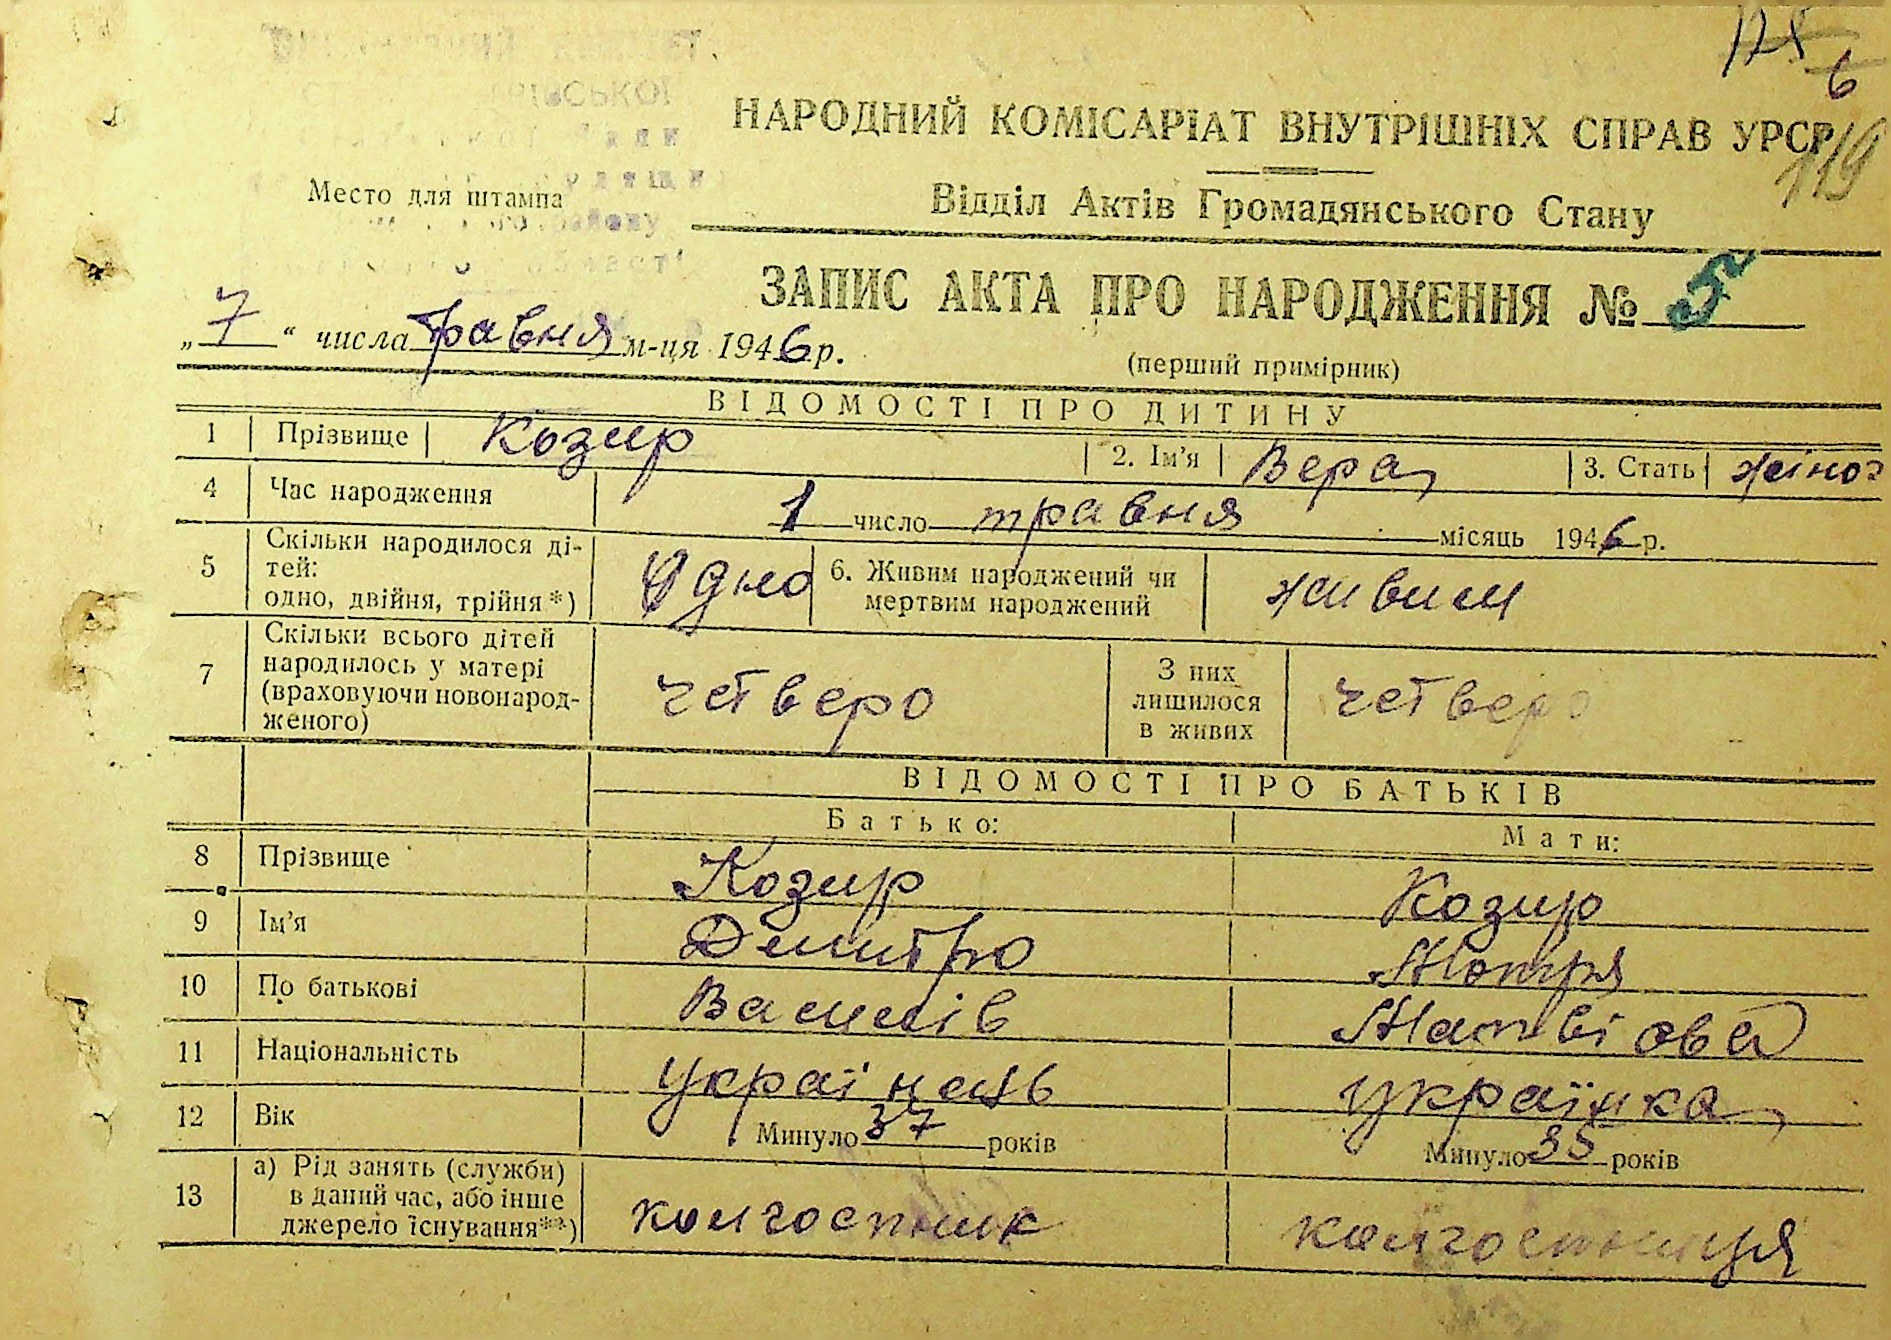 6
НАРОДНИЙ КОМІСАРІАТ ВНУТРІШНІХ СПРАВ УРСР
119
Место для штампа
Відділ Актів Громадянського Стану
ЗАПИС АКТА ПРО НАРОДЖЕННЯ № 5
„7“ числа травня м-ця 1946 р.
(перший примірник)
ВІДОМОСТІ ПРО ДИТИНУ
1 Прізвище Козир 2. Ім'я Вера 3. Стать жіноч
4 Час народження 1 число травня місяць 1946 р.
5 Скільки народилося ді-
тей:
одно, двійня, трійня*) Одно 6. Живим народжений чи
мертвим народжений живим
7 Скільки всього дітей
народилось у матері
(враховуючи новонарод-
женого) четверо З них
лишилося
в живих четверо
ВІДОМОСТІ ПРО БАТЬКІВ
Батько: Мати:
8 Прізвище Козир Козир
9 Ім'я Дмитро Мотря
10 По батькові Василів Матвіова
11 Національність Українець Українка
12 Вік Минуло 37 років Минуло 35 років
13 а) Рід занять (служби)
в даний час, або інше
джерело існування**) колгоспник колгоспниця